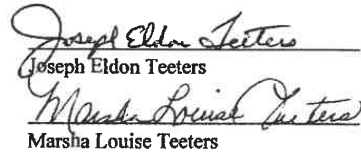 Joseph Eldon Teeters
Joseph Eldon Teeters
Marsha Louise Teeters
Marsha Louise Teeters